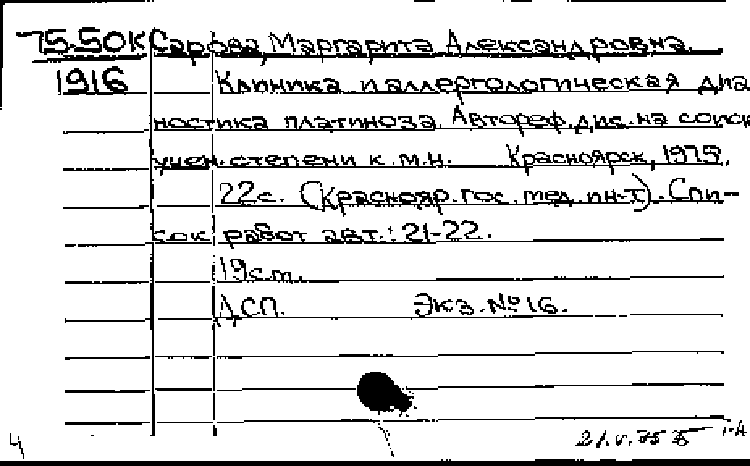 75-50К Сарова, Маргарита Александровна.
1916 Клиника и аллергологическая диа
ностика платиноза. Автореф. дис. на соиск
учен. степени к. м. н. Красноярск, 1975.
22с. (Краснояр. гос. мед. ин-т). Спи-
сок работ авт.: 21-22.
19см.
ДСП. Экз. № 16.
4 21.V.75